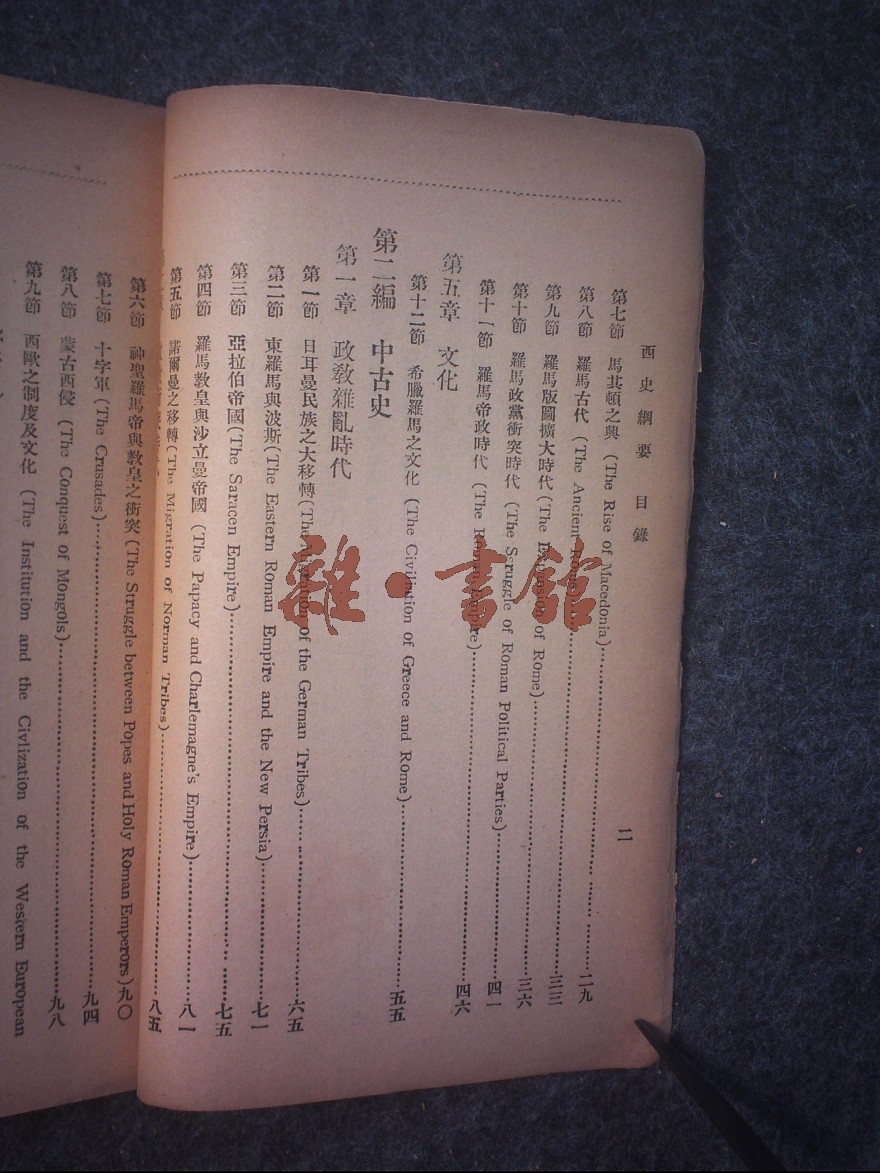 西史綱要 目錄 二
第七節 馬其頓之興 (The Rise of Macedonia)
第八節 羅馬古代 (The Ancient 二九
第九節 羅馬版圖擴大時代 (The Expansion of Rome) 三三
第十節 羅馬政黨衝突時代 (The Scruggle of Roman Political Parties) 三六
第十一節 羅馬帝政時代 (The Roman Empire) 四一
第五章 文化 四六
第十二節 希臘羅馬之文化 (The Civilization of Greece and Rome) 五五
第二編 中古史
第一章 政教雜亂時代
第一節 日耳曼民族之大移轉 (The Migration of the German Tribes) 六五
第二節 東羅馬與波斯 (The Eastern Roman Empire and the New Persia) 七一
第三節 亞拉伯帝國 (The Saracen Empire) 七五
第四節 羅馬教皇與沙立曼帝國 (The Papacy and Charlemagne's Empire) 八一
第五節 諾爾曼之移轉 (The Migration of Norman Tribes) 八五
第六節 神聖羅馬帝與教皇之衝突 (The Struggle between Popes and Holy Roman Emperors) 九〇
第七節 十字軍 (The Crusades) 九四
第八節 蒙古西侵 (The Conquest of Mongols) 九八
第九節 西歐之制度及文化 (The Institution and the Civlization of the Western European
雜·書館